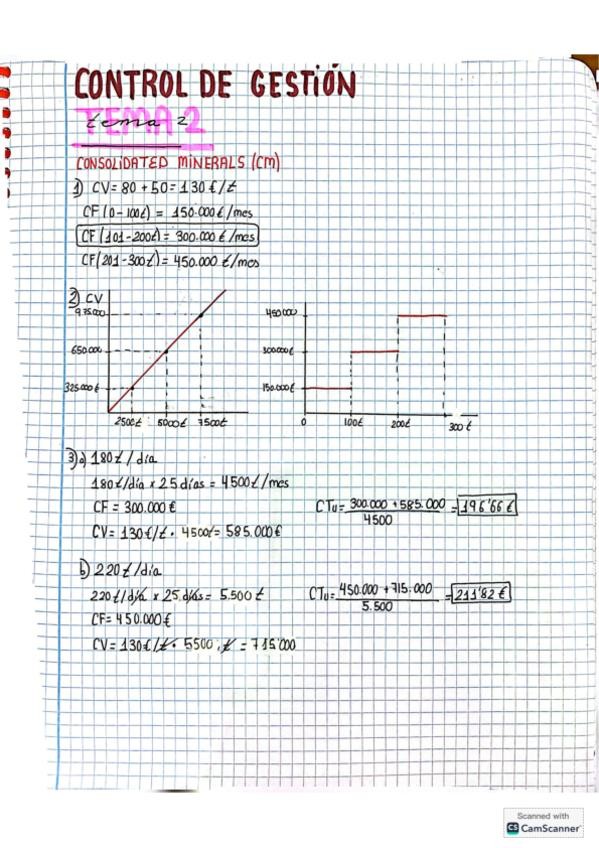 CONTROL DE GESTIÓN
TEMA 2
tema 2
CONSOLIDATED MINERALS (CM)
1) CV = 80 + 50 = 130 €/t
CF (0-100t) = 150.000 €/mes
CF (101-200t) = 300.000 €/mes
CF (201-300t) = 450.000 €/mes
2) CV
975000
650.000
325.000 €
2500t 5000t 7500t
450000
300000€
150.000€
0 100t 200t 300t
3) a) 180t/día
180t/día x 25 días = 4500t/mes
CF = 300.000 €
CV = 130€/t · 4500t = 585.000€
CTu = 300.000 + 585.000 / 4500 = 196'66 €
b) 220t/día
220t/día x 25 días = 5.500 t
CF = 450.000€
CV = 130€/t · 5500 t = 715'000
CTu = 450.000 + 715.000 / 5.500 = 211'82 €
Scanned with
CS CamScanner